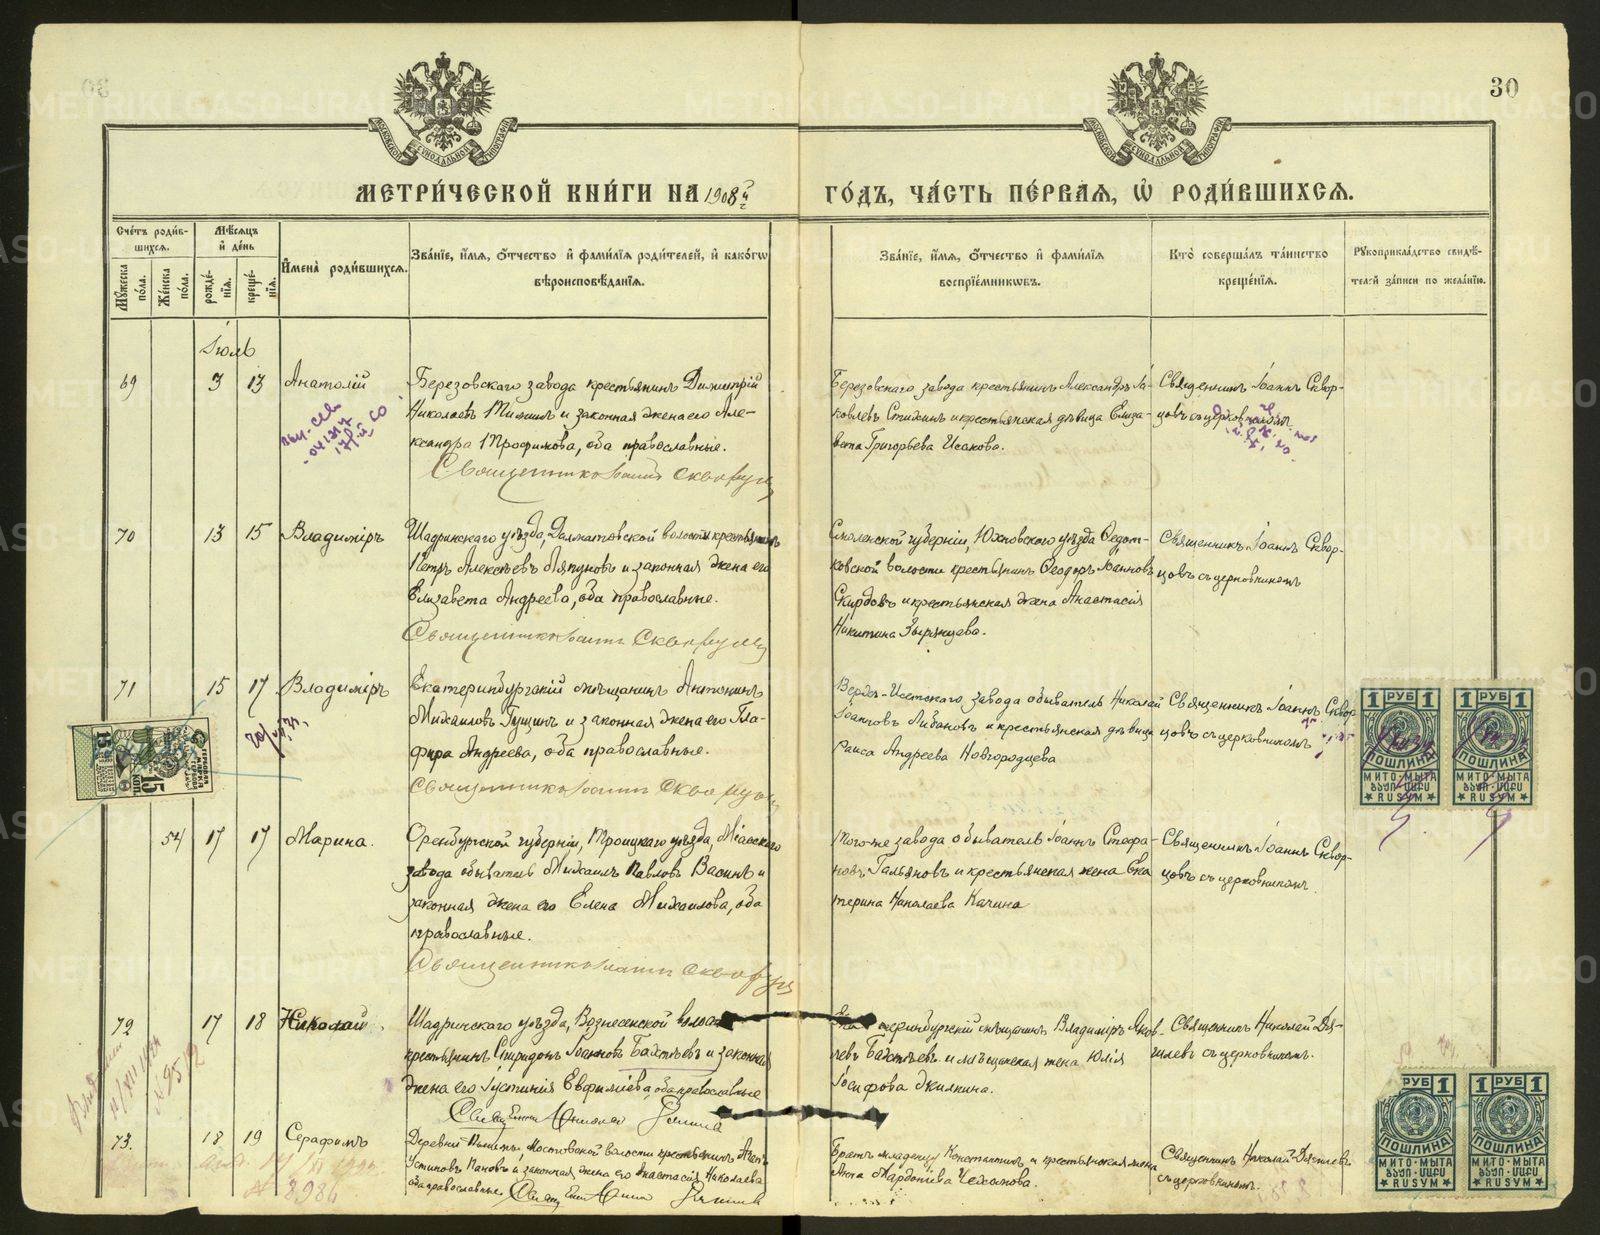 30
МЕТРИ́ЧЕСКОЙ КНИ́ГИ НА 1908 г.
ГО́ДЪ, ЧА́СТЬ ПЕ́РВАЯ, Ѡ РОДИ́ВШИХСЯ.
Сче́тъ роди́в-
шихся.
Му́жеска по́ла.
Же́нска по́ла.
Мѣ́сяцъ
и҆ де́нь
рожде́-
нїя.
креще́-
нїя.
И҆мена̀ роди́вшихся.
Зва́нїе, и҆́мя, ѻ҆́тчество и҆ фами́лїя роди́телей, и҆ како́гѡ
вѣроисповѣ́данїя.
Зва́нїе, и҆́мя, ѻ҆́тчество и҆ фами́лїя
воспрїе́мникѡвъ.
Кто̀ соверша́лъ та́инство
креще́нїя.
Рꙋкоприкла́дство свидѣ́-
телей за́писи по жела́нїю.
Іюль
69 3 13 Анатолій
Березовскаго завода крестьянинъ Димитрій
Николаевъ и законная жена его Але-
ксандра Трофимова, оба православные.
Священникъ Іоаннъ Скворцовъ
Березовскаго завода крестьянинъ Александръ Іа-
ковлевъ и крестьянская дѣвица Елиза-
вета Григорьева Исакова.
Священникъ Іоаннъ Сквор-
цовъ съ церковникомъ
70 13 15 Владиміръ
Шадринскаго уѣзда, Далматовской волости крестьянинъ
Петръ Алексѣевъ Ляпуновъ и законная жена его
Елизавета Андреева, оба православные.
Священникъ Іоаннъ Скворцовъ
Смоленской губерніи, Юхновскаго уѣзда Федот-
ковской волости крестьянинъ Феодоръ Іоанновъ
Скирдовъ и крестьянская жена Анастасія
Никитина Зырянцева.
Священникъ Іоаннъ Сквор-
цовъ съ церковникомъ
71 15 17 Владиміръ
Екатеринбургскій мѣщанинъ Антонинъ
Михаиловъ Гущинъ и законная жена его Гла-
фира Андреева, оба православные.
Священникъ Іоаннъ Скворцовъ
Верхъ-Исетскаго завода обыватель Николай
Іоанновъ Либановъ и крестьянская дѣвица
Раиса Андреева Новгородцева
Священникъ Іоаннъ Сквор-
цовъ съ церковникомъ
15 КОП.
ГЕРБОВАЯ МАРКА
1 РУБ 1
ПОШЛИНА
МИТО·МЫТА
RUSYM
1 РУБ 1
ПОШЛИНА
МИТО·МЫТА
RUSYM
54 17 17 Марина.
Оренбургской губерніи, Троицкаго уѣзда, Міасскаго
завода обыватель Михаилъ Павловъ Васинъ и
законная жена его Елена Михаилова, оба
православные.
Священникъ Іоаннъ Скворцовъ
Того-же завода обыватель Іоаннъ Стефа-
новъ Гальяновъ и крестьянская жена Ека
терина Николаева Качина
Священникъ Іоаннъ Сквор-
цовъ съ церковникомъ.
72 17 18 Николай.
Шадринскаго уѣзда, Вознесенской волости
крестьянинъ Спиридонъ Іоанновъ Бахтѣевъ и законная
жена его Іустинія Евфиміева, оба православные
Екатеринбургскій мѣщанинъ Владиміръ Яков-
левъ Бахтѣевъ и мѣщанская жена Юлія
Іосифова
Священникъ Николай Дя-
гилевъ съ церковникомъ.
73. 18 19 Серафимъ
Деревни Мостовской волости крестьянинъ
Устиновъ Пановъ и законная жена его Анастасія Николаева
оба православные.
Братъ младенца Константинъ и крестьянская жена
Анна Мардоніева
Священникъ Николай Дягилевъ
съ церковникомъ.
1 РУБ 1
ПОШЛИНА
МИТО·МЫТА
RUSYM
1 РУБ 1
ПОШЛИНА
МИТО·МЫТА
RUSYM